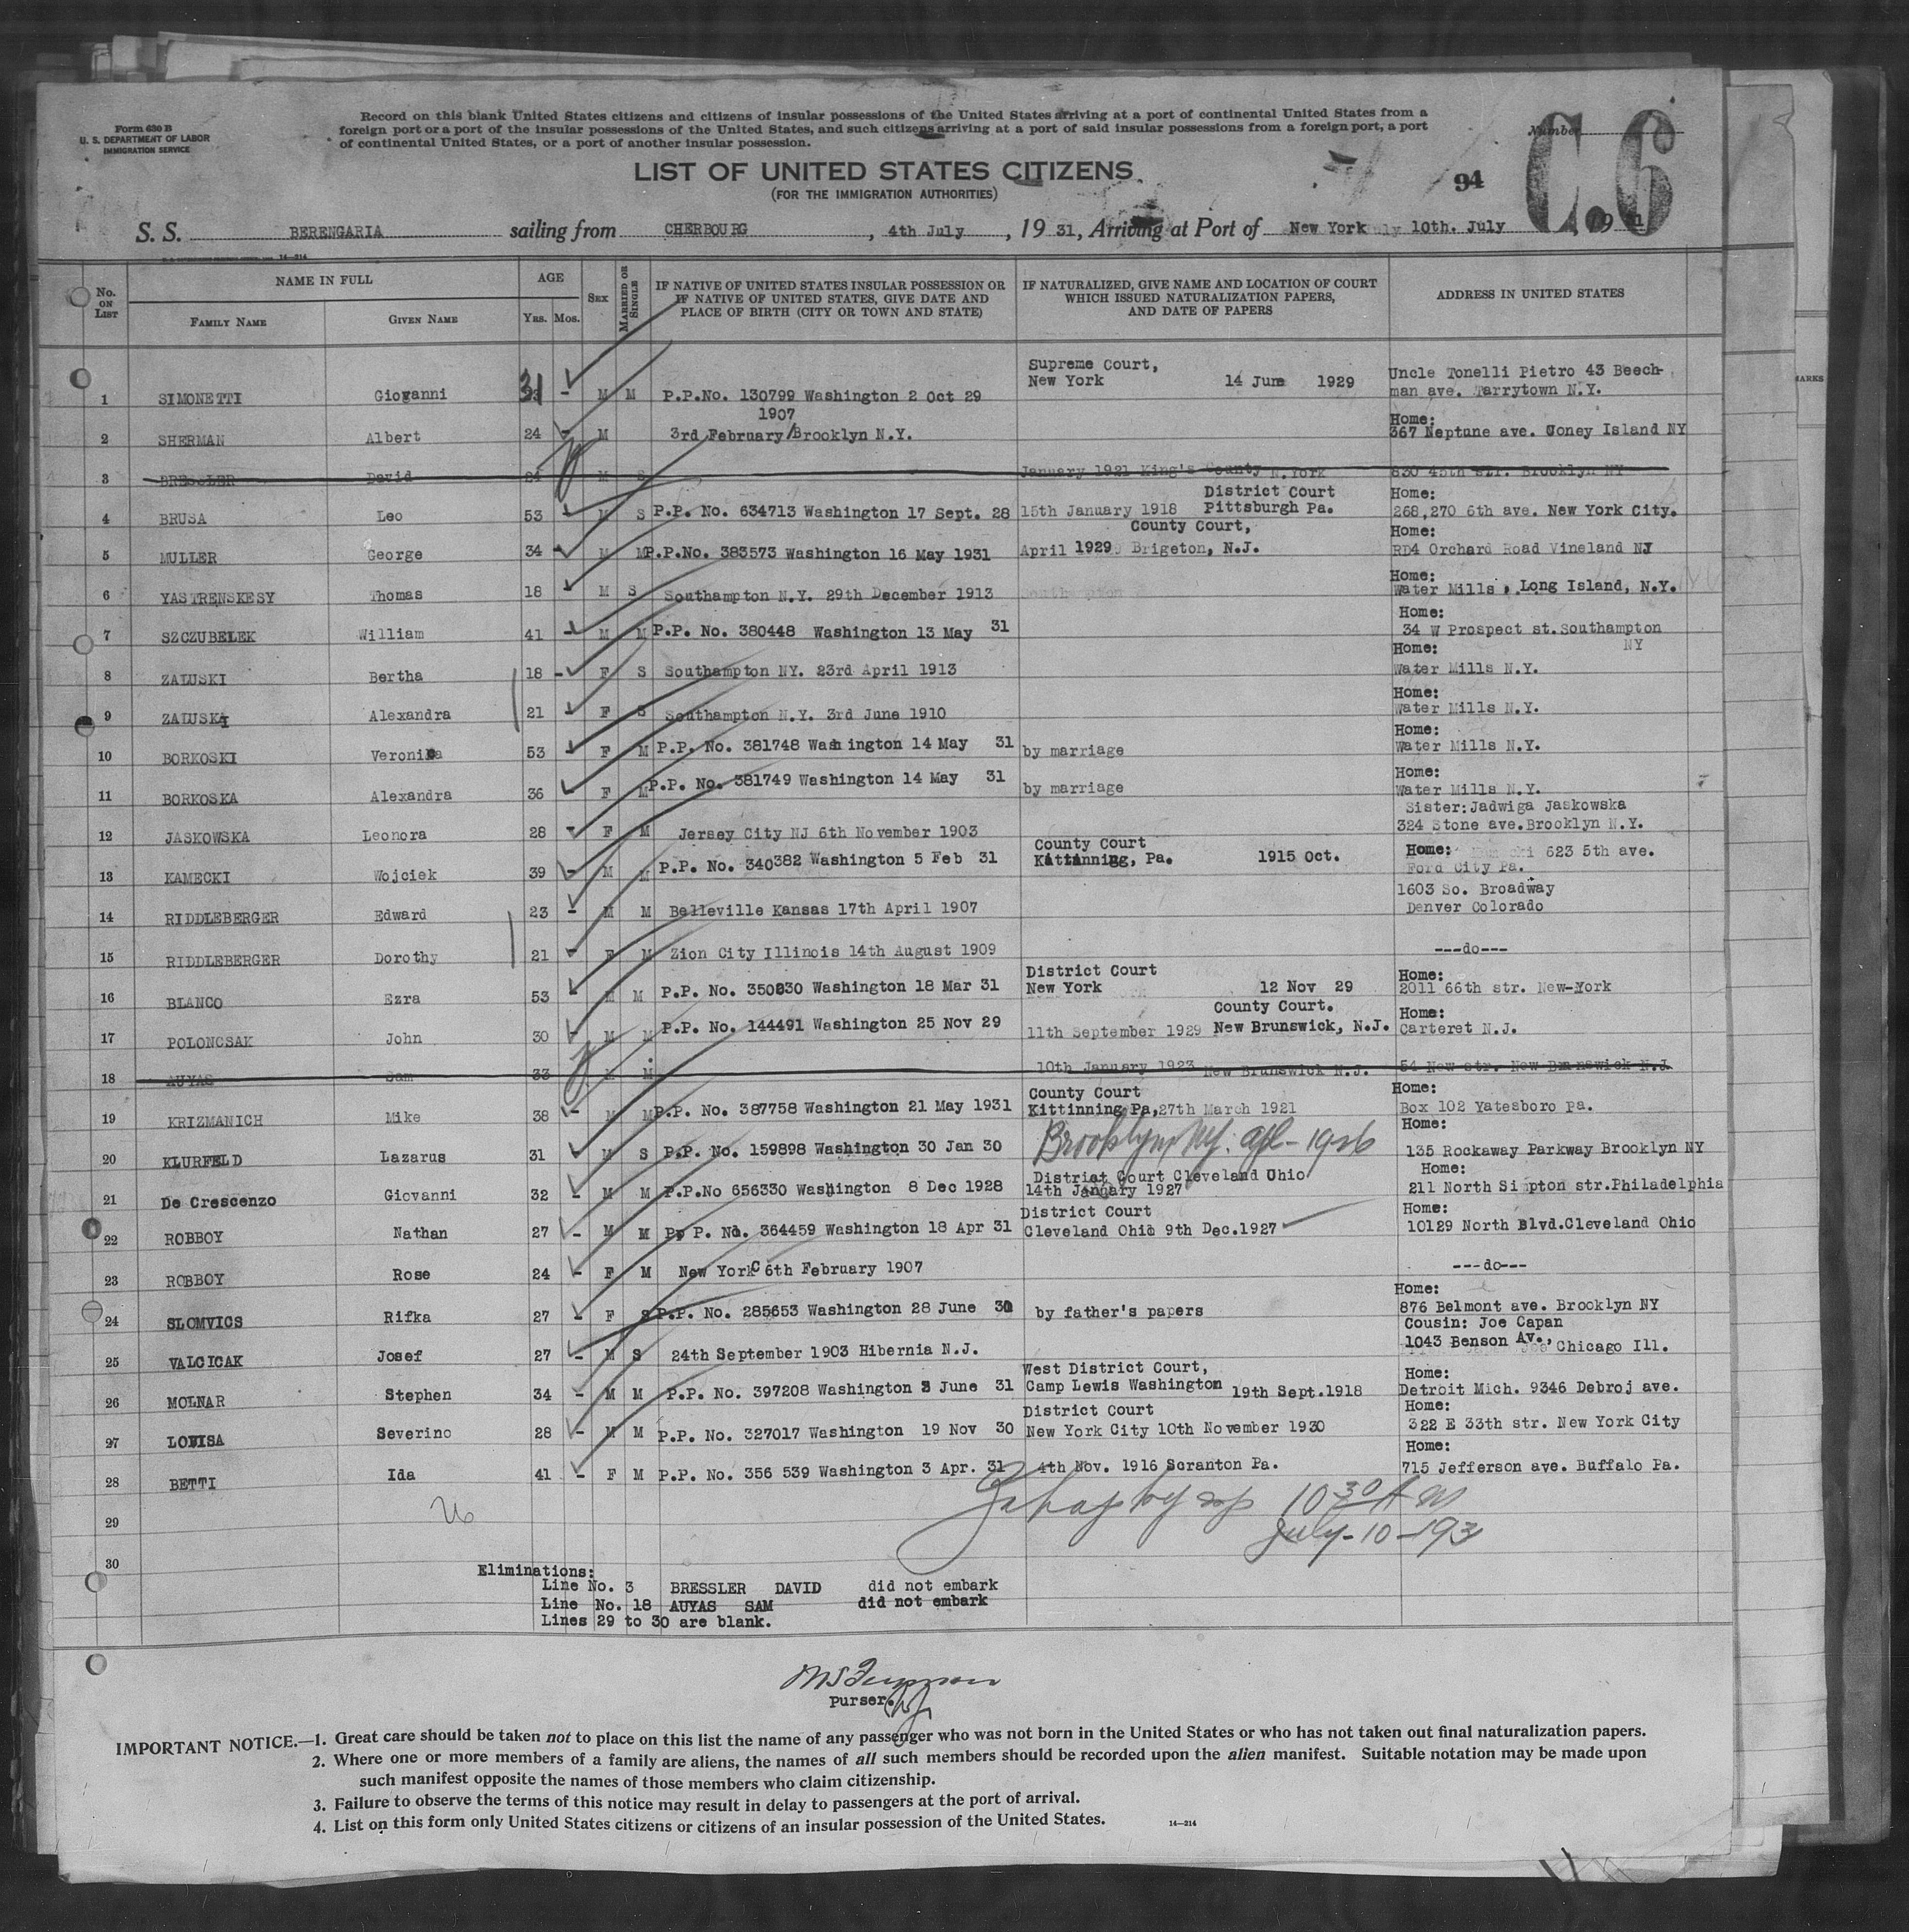 Form 630 B
U. S. DEPARTMENT OF LABOR
IMMIGRATION SERVICE
Record on this blank United States citizens and citizens of insular possessions of the United States arriving at a port of continental United States from a
foreign port or a port of the insular possessions of the United States, and such citizens arriving at a port of said insular possessions from a foreign port, a port
of continental United States, or a port of another insular possession.
Number
C.6
94
LIST OF UNITED STATES CITIZENS
(FOR THE IMMIGRATION AUTHORITIES)
S. S. BERENGARIA sailing from CHERBOURG, 4th July, 19 31, Arriving at Port of New York 10th. July, 19
14—214
No. ON LIST
NAME IN FULL
FAMILY NAME
GIVEN NAME
AGE
YRS. MOS.
SEX
MARRIED OR SINGLE
IF NATIVE OF UNITED STATES INSULAR POSSESSION OR
IF NATIVE OF UNITED STATES, GIVE DATE AND
PLACE OF BIRTH (CITY OR TOWN AND STATE)
IF NATURALIZED, GIVE NAME AND LOCATION OF COURT
WHICH ISSUED NATURALIZATION PAPERS,
AND DATE OF PAPERS
ADDRESS IN UNITED STATES
Supreme Court,
New York 14 June 1929
Uncle Tonelli Pietro 43 Beech-
man ave. Tarrytown N.Y.
1 SIMONETTI Giovanni 31 - M M P.P.No. 130799 Washington 2 Oct 29
1907
Home:
2 SHERMAN Albert 24 - M 3rd February/Brooklyn N.Y. 367 Neptune ave. Coney Island NY
3 BRESSLER David 24 M S January 1921 King's County N.York 830 45th str. Brooklyn NY
District Court
Home:
4 BRUSA Leo 53 - M S P.P. No. 634713 Washington 17 Sept. 28 15th January 1918 Pittsburgh Pa. 268,270 6th ave. New York City.
County Court,
Home:
5 MULLER George 34 - M M P.P.No. 383573 Washington 16 May 1931 April 1929 Brigeton, N.J. RD4 Orchard Road Vineland NJ
Home:
6 YASTRENSKESY Thomas 18 - M S Southampton N.Y. 29th December 1913 Water Mills, Long Island, N.Y.
Home:
7 SZCZUBELEK William 41 - M M P.P. No. 380448 Washington 13 May 31 34 W Prospect st. Southampton
NY
Home:
8 ZALUSKI Bertha 18 - F S Southampton NY. 23rd April 1913 Water Mills N.Y.
Home:
9 ZALUSKI Alexandra 21 - F S Southampton N.Y. 3rd June 1910 Water Mills N.Y.
Home:
10 BORKOSKI Veronica 53 - F M P.P. No. 381748 Washington 14 May 31 by marriage Water Mills N.Y.
Home:
11 BORKOSKA Alexandra 36 - F M P.P. No. 381749 Washington 14 May 31 by marriage Water Mills N.Y.
Sister: Jadwiga Jaskowska
12 JASKOWSKA Leonora 28 - F M Jersey City NJ 6th November 1903 324 Stone ave. Brooklyn N.Y.
County Court
13 KAMECKI Wojciek 39 - M M P.P. No. 340382 Washington 5 Feb 31 Kittinning, Pa. 1915 Oct. Home: 623 5th ave.
Ford City Pa.
1603 So. Broadway
14 RIDDLEBERGER Edward 23 - M M Belleville Kansas 17th April 1907 Denver Colorado
15 RIDDLEBERGER Dorothy 21 - F M Zion City Illinois 14th August 1909 ---do---
District Court
Home:
16 BLANCO Ezra 53 - M M P.P. No. 350830 Washington 18 Mar 31 New York 12 Nov 29 2011 66th str. New-York
County Court.
Home:
17 POLONCSAK John 30 - M M P.P. No. 144491 Washington 25 Nov 29 11th September 1929 New Brunswick, N.J. Carteret N.J.
18 AUYAS Sam 33 M M 10th January 1923 New Brunswick N.J. 54 New str. New Brunswick N.J.
County Court
Home:
19 KRIZMANICH Mike 38 - M M P.P. No. 387758 Washington 21 May 1931 Kittinning Pa, 27th March 1921 Box 102 Yatesboro pa.
Home:
20 KLURFELD Lazarus 31 M S P.P. No. 159898 Washington 30 Jan 30 Brooklyn NY. apl - 1926 135 Rockaway Parkway Brooklyn NY
District Court Cleveland Ohio
Home:
21 De Crescenzo Giovanni 32 - M M P.P.No 656330 Washington 8 Dec 1928 14th January 1927 211 North Simpton str. Philadelphia
District Court
Home:
22 ROBBOY Nathan 27 - M M P.P. No. 364459 Washington 18 Apr 31 Cleveland Ohio 9th Dec. 1927 10129 North Blvd. Cleveland Ohio
23 ROBBOY Rose 24 - F M New York C 6th February 1907 ---do---
Home:
24 SLOMVICS Rifka 27 - F S P.P. No. 285653 Washington 28 June 30 by father's papers 876 Belmont ave. Brooklyn NY
Cousin: Joe Capan
25 VALCICAK Josef 27 - M S 24th September 1903 Hibernia N.J. 1043 Benson Av., Chicago Ill.
West District Court,
Home:
26 MOLNAR Stephen 34 - M M P.P. No. 397208 Washington 3 June 31 Camp Lewis Washington 19th Sept. 1918 Detroit Mich. 9346 Debroj ave.
District Court
Home:
27 LOVISA Severino 28 - M M P.P. No. 327017 Washington 19 Nov 30 New York City 10th November 1930 322 E 33th str. New York City
Home:
28 BETTI Ida 41 - F M P.P. No. 356 539 Washington 3 Apr. 31 4th Nov. 1916 Scranton Pa. 715 Jefferson ave. Buffalo Pa.
10 30 A M
29
July - 10 - 193
30
Eliminations:
Line No. 3 BRESSLER DAVID did not embark
Line No. 18 AUYAS SAM did not embark
Lines 29 to 30 are blank.
Purser.
IMPORTANT NOTICE.—1. Great care should be taken not to place on this list the name of any passenger who was not born in the United States or who has not taken out final naturalization papers.
2. Where one or more members of a family are aliens, the names of all such members should be recorded upon the alien manifest. Suitable notation may be made upon
such manifest opposite the names of those members who claim citizenship.
3. Failure to observe the terms of this notice may result in delay to passengers at the port of arrival.
4. List on this form only United States citizens or citizens of an insular possession of the United States.
14—214